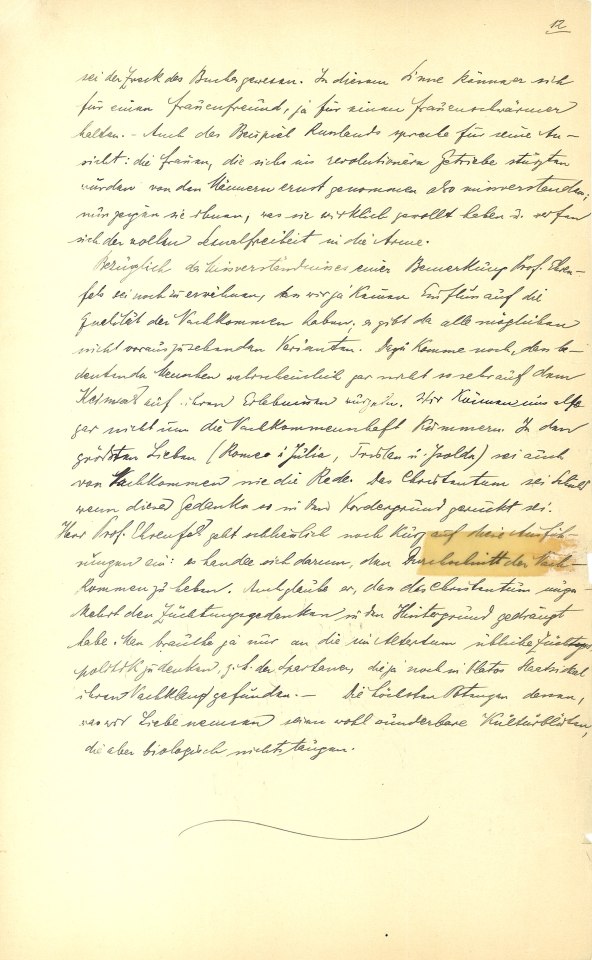 12
sei der Zweck des Buches gewesen. In diesem Sinne könne er sich
für einen Frauenfreund, ja für einen Frauenschwärmer
halten. – Auch das Beispiel Russlands spreche für seine An-
sicht: die Frauen, die sich ins revolutionäre Getriebe stürzten
würden von den Männern ernst genommen also missverstanden;
nun zeigen sie ihnen, was sie wirklich gewollt haben u. werfen
sich der vollen Sexualfreiheit in die Arme.
Bezüglich des Missverständnisses einer Bemerkung Prof. Ehren-
fels sei noch zu erwähnen, dass wir ja keinen Einfluss auf die
Qualität der Nachkommen haben; es gibt da alle möglichen
nicht vorauszusehenden Varianten. Dazu komme noch, dass be-
deutende Menschen wahrscheinlich gar nicht so sehr auf dem
Keimval auf ihren Erlebnissen Wir können uns also
gar nicht um die Nachkommenschaft kümmern. In den
größten Lieben (Romeo u. Julia, Tristan u. Isolda) sei auch
von Nachkommen nie die Rede. Das Christentum sei Schuld
wenn dieser Gedanke so in den Vordergrund gerückt sei.
Herr Prof. Ehrenfels geht schließlich noch kurz auf diese Ausfüh-
rungen ein: es handle sich darum, den Durchschnitt der Nach-
kommen zu heben. Auch glaube er, dass das Christentum umge-
kehrt den Züchtungsgedanken in den Hintergrund gedrängt
habe. Man brauche ja nur an die im Altertum übliche Züchtungs
politik zu denken, z. b. der Spartaner, die ja noch in Platos Staatsideal
ihren Nachklang gefunden. – Die höchsten dessen,
was wir Liebe nennen seien wohl wunderbare Kulturblüten,
die aber biologisch nichts taugen.